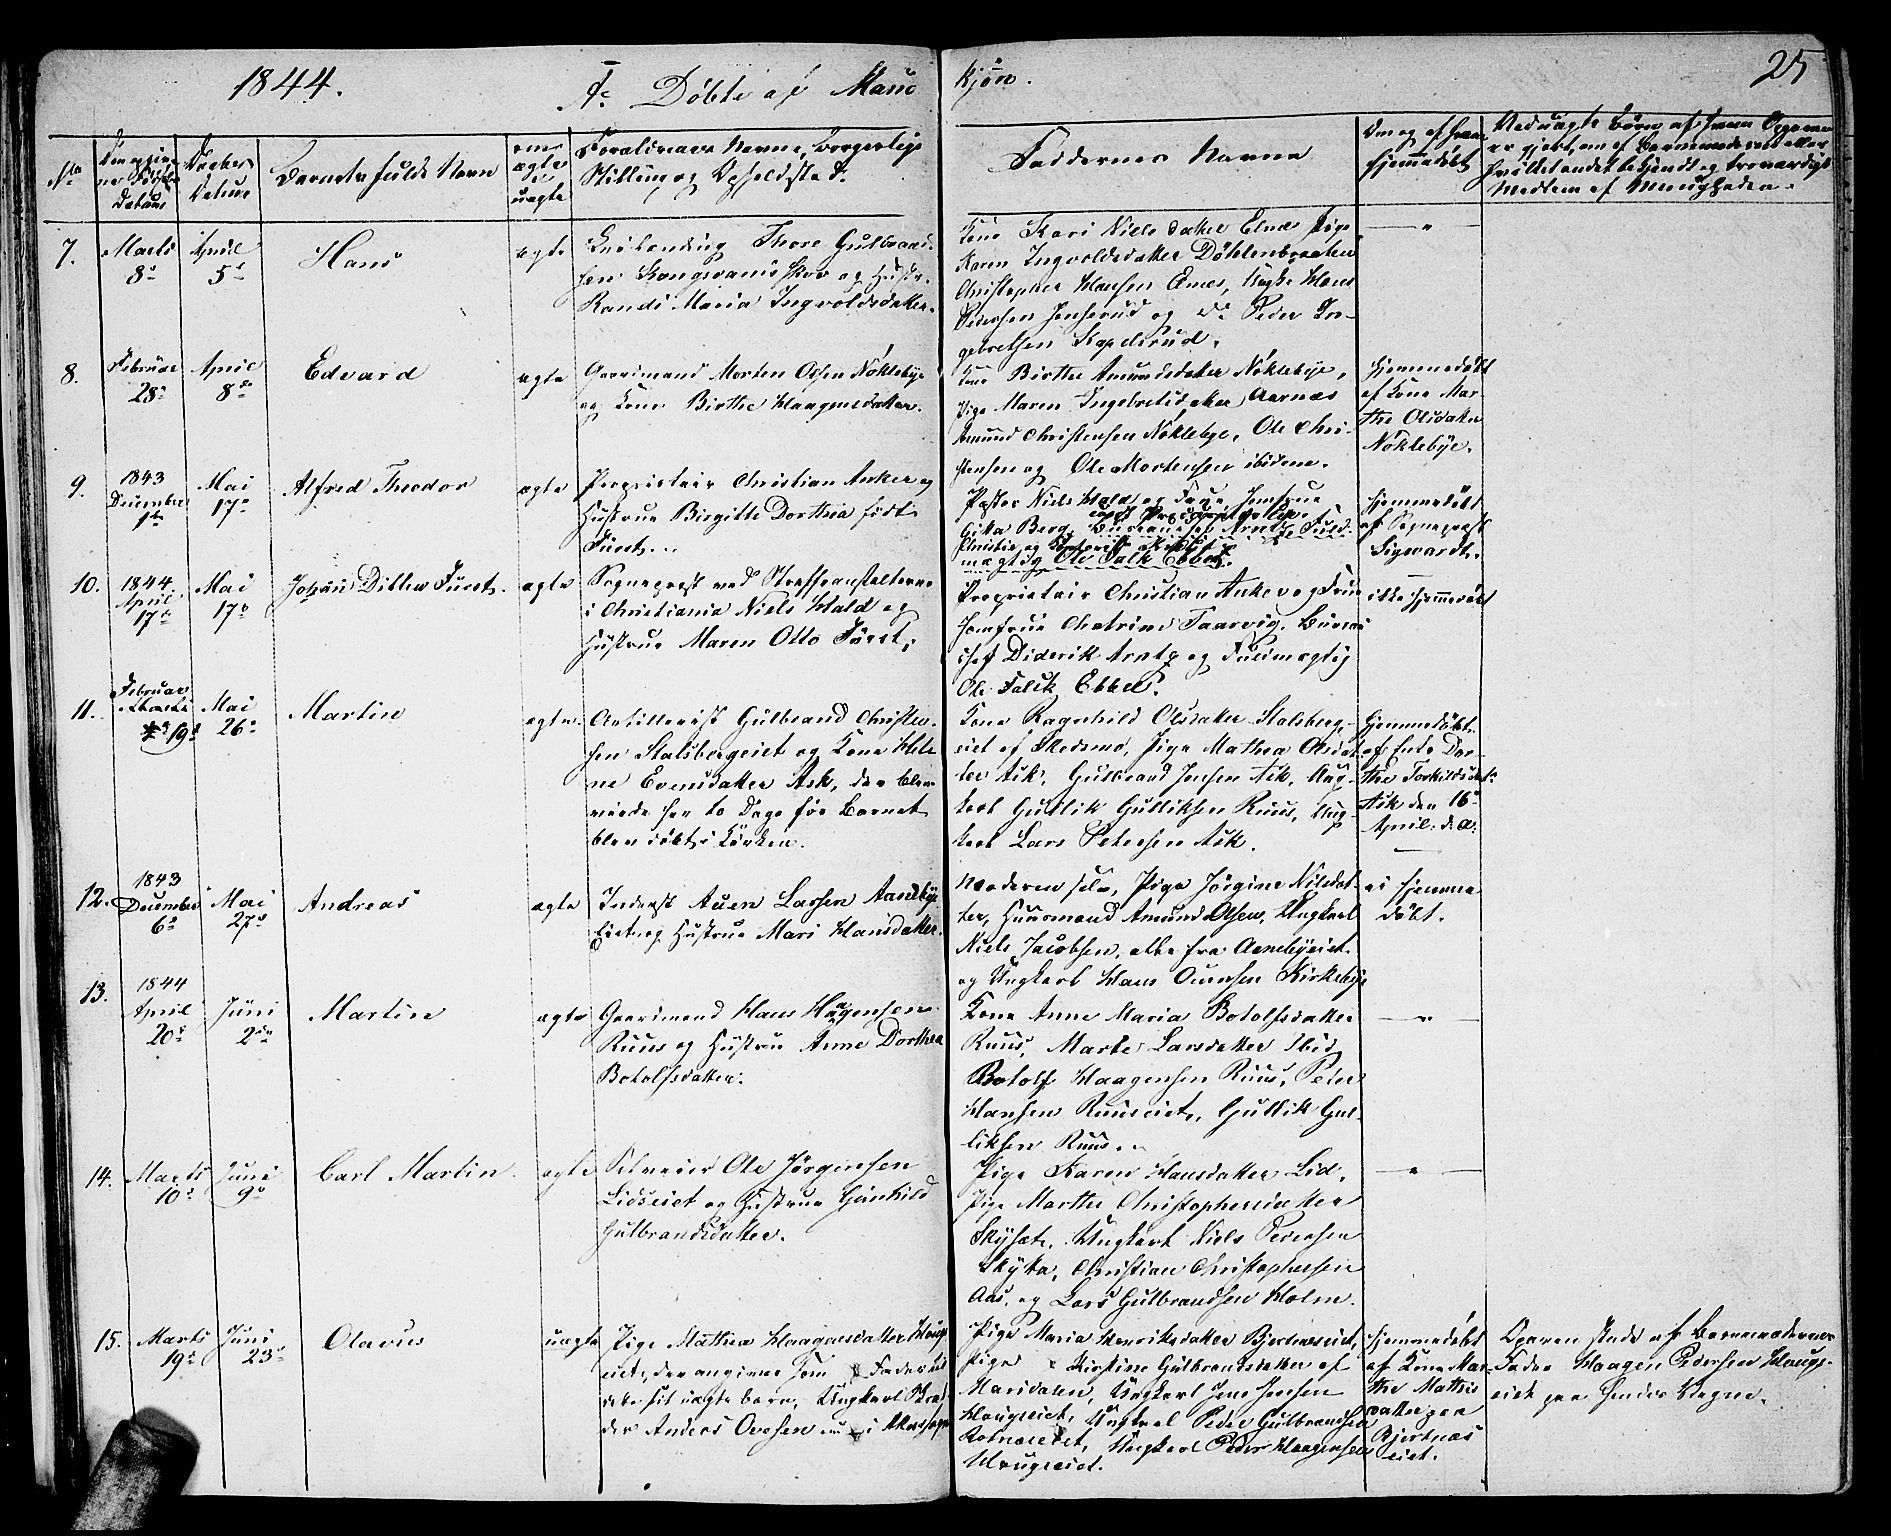 1844.
A. Döbte af Mand
Kjön.
25
No
Barnets fulde Navn
Forældrenes Navne, Borgerlige
Stilling og Opholdsted.
Faddernes Navne
Om og af hvem
hjemmedöbt
Medlem af Menigheden.
7.
Marts
8de
April
5te
Hans
ægte
Thore Gulbrand-
sen Kongsvangs Skov og Hustr.
Randi Maria Ingvoldsdatter.
Kone Kari Nielsdatter Elnes, Pige
Karen Ingvoldsdatter Döhlenbraaten
Christopher Hansen Elnes, Hans
Pedersen Jenserud og Do Peder In-
gebretsen Kapelsrud.
8.
Februar
28de
April
8de
Edvard
ægte
Gaardmand Morten Olsen Nöklebye
og Kone Birthe Haagensdatter.
Kone Birthe Amundsdatter Nöklebye,
Pige Maren Ingebretsdatter Aarnæs
Amund Christensen Nöklebye, Ole Chri-
stensen og Ole Mortensen ibidem.
Hjemmedöbt
af Kone Mar-
the Olsdatter
Nöklebye.
9.
1843
December
1te
Mai
17de
Alfred Theodor
ægte
Proprietair Christian Anker og
Hustrue Birgitte Dorthea födt
Fürst.
Pastor Niels Hald og Frue, Jomfrue
Gitta Berg,
mægtig Ole Falk Ebbel.
hjemmedöbt
af Sognepræst
Sigwardt.
10.
1844
April
17de
Mai
17de
Johan Ditlew Fürst.
ægte
Sognepræst ved Straffeanstalterne
i Christiania Niels Hald og
Hustrue Maren Otto Fürst.
Proprietair Christian Anker og Frue
Jomfrue Chatrine Taarvig, Bureau
chef Diderik Arntz og Fuldmægtig
Ole Falck Ebbel.
ikke hjemmedöbt
11.
Februar
19de
Mai
26de
Martin
ægte
Artillerist Gulbrand Christen-
sen Stalsbergeiet og Kone Hele-
ne Evensdatter Ask, der blev
viede her to Dage för Barnet
blev döbt i Kirken.
Kone Ragnhild Olsdatter Stalsberg-
eiet af Skedsmo, Pige Mathea Olsdat-
ter Ask, Gulbrand Jensen Ask, Ung-
karl Gullik Gulliksen Ruus, Ung-
karl Lars Petersen Ask.
Hjemmedöbt
af Enke Dor-
the Torkildsdat.
Ask den 16de
April d. A.
12.
1843
December
6te
Mai
27de
Andreas
ægte
Inderst Auen Larsen Aanebye
Eiet og Hustrue Mari Hansdatter.
Moderen selv, Pige Jörgine Nilsdat-
ter, Huusmand Amund Olsen, Ungkarl
Niels Jacobsen, alle fra Aanebyeiet
og Ungkarl Hans Ounersen Kirkebye
ei hjemme
döbt.
13.
1844
April
20de
Juni
2den
Martin
ægte
Gaardmand Hans Haagensen
Ruus og Hustrue Anne Dorthea
Botolfsdatter.
Kone Anne Maria Botolfsdatter
Ruus, Marte Larsdatter Ibid.
Botolf Haagensen Ruus, Peder
Hansen Ruuseiet, Gullik Gul-
liksen Ruus.
14.
Marts
10de
Juni
9de
Carl Martin
ægte
Selveier Ole Jörgensen
Lidseiet og Hustrue Gunhild
Gulbrandsdatter.
Pige Karen Hansdatter Lid,
Pige Marthe Christophersdatter
Skÿsæt, Ungkarl Niels Pedersen
Skÿta, Christian Christophersen
Aas, og Lars Gulbrandsen Holm.
15.
Marts
19de
Juni
23de
Olavus
uægte
Pige Mathea Haagensdatter Haug-
eiet, der angiver som Fader til
dette sit uægte barn, Ungkarl
Anders Ovesen
Pige Maria Henriksdatter Bjertnæseiet,
Pige Kirstine Gulbrandsdatter af
Maridalen, Ungkarl Jens Jensen
Haugseiet, Ungkarl Peder Gulbrandsen
Rotnæseiet, Ungkarl Peder Haagensen
Haugseiet.
Hjemmedöbt
af Kone Mar-
the Mathis
datter paa
Bjertnæs
eiet.
Opgaven skede af Barnemoderens
Fader Haagen Pedersen Haugs-
eiet paa hendes Vegne.